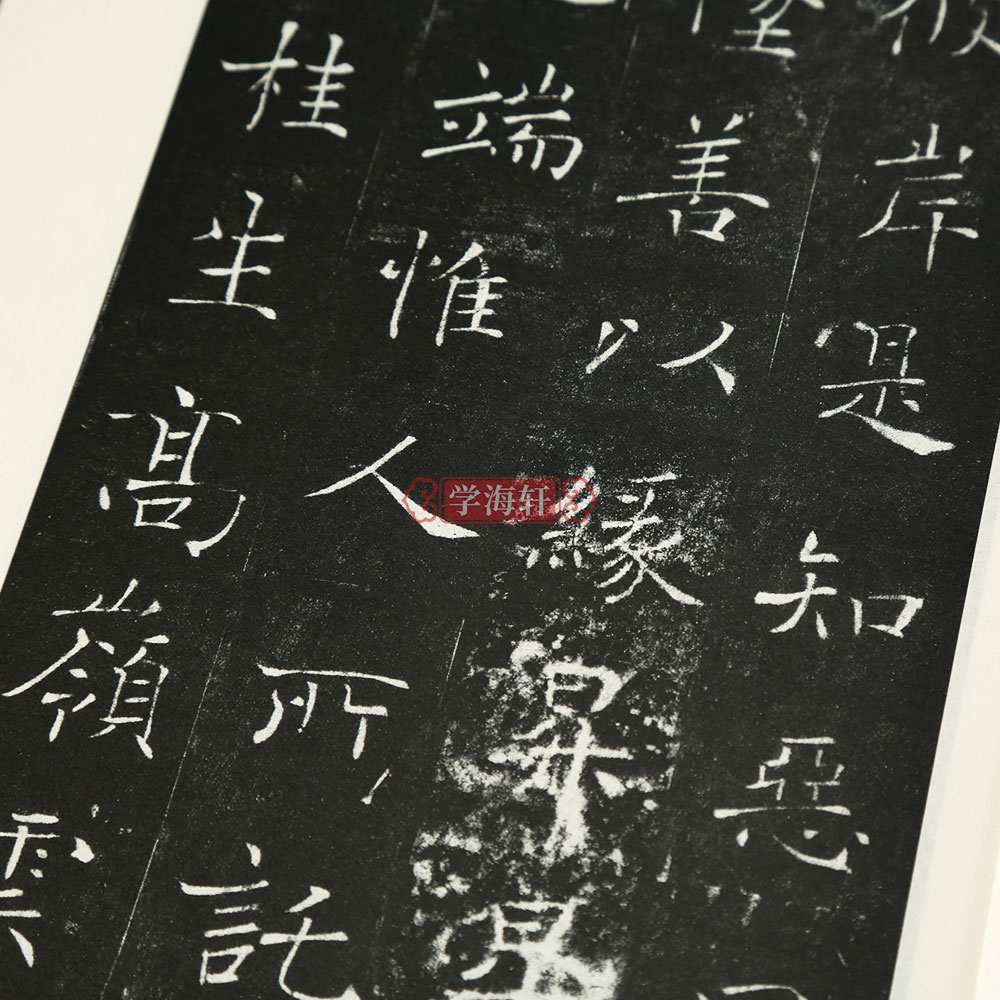 彼岸是知惡
墜善以緣昇昇
端惟人所託
桂生高嶺雲
学海轩